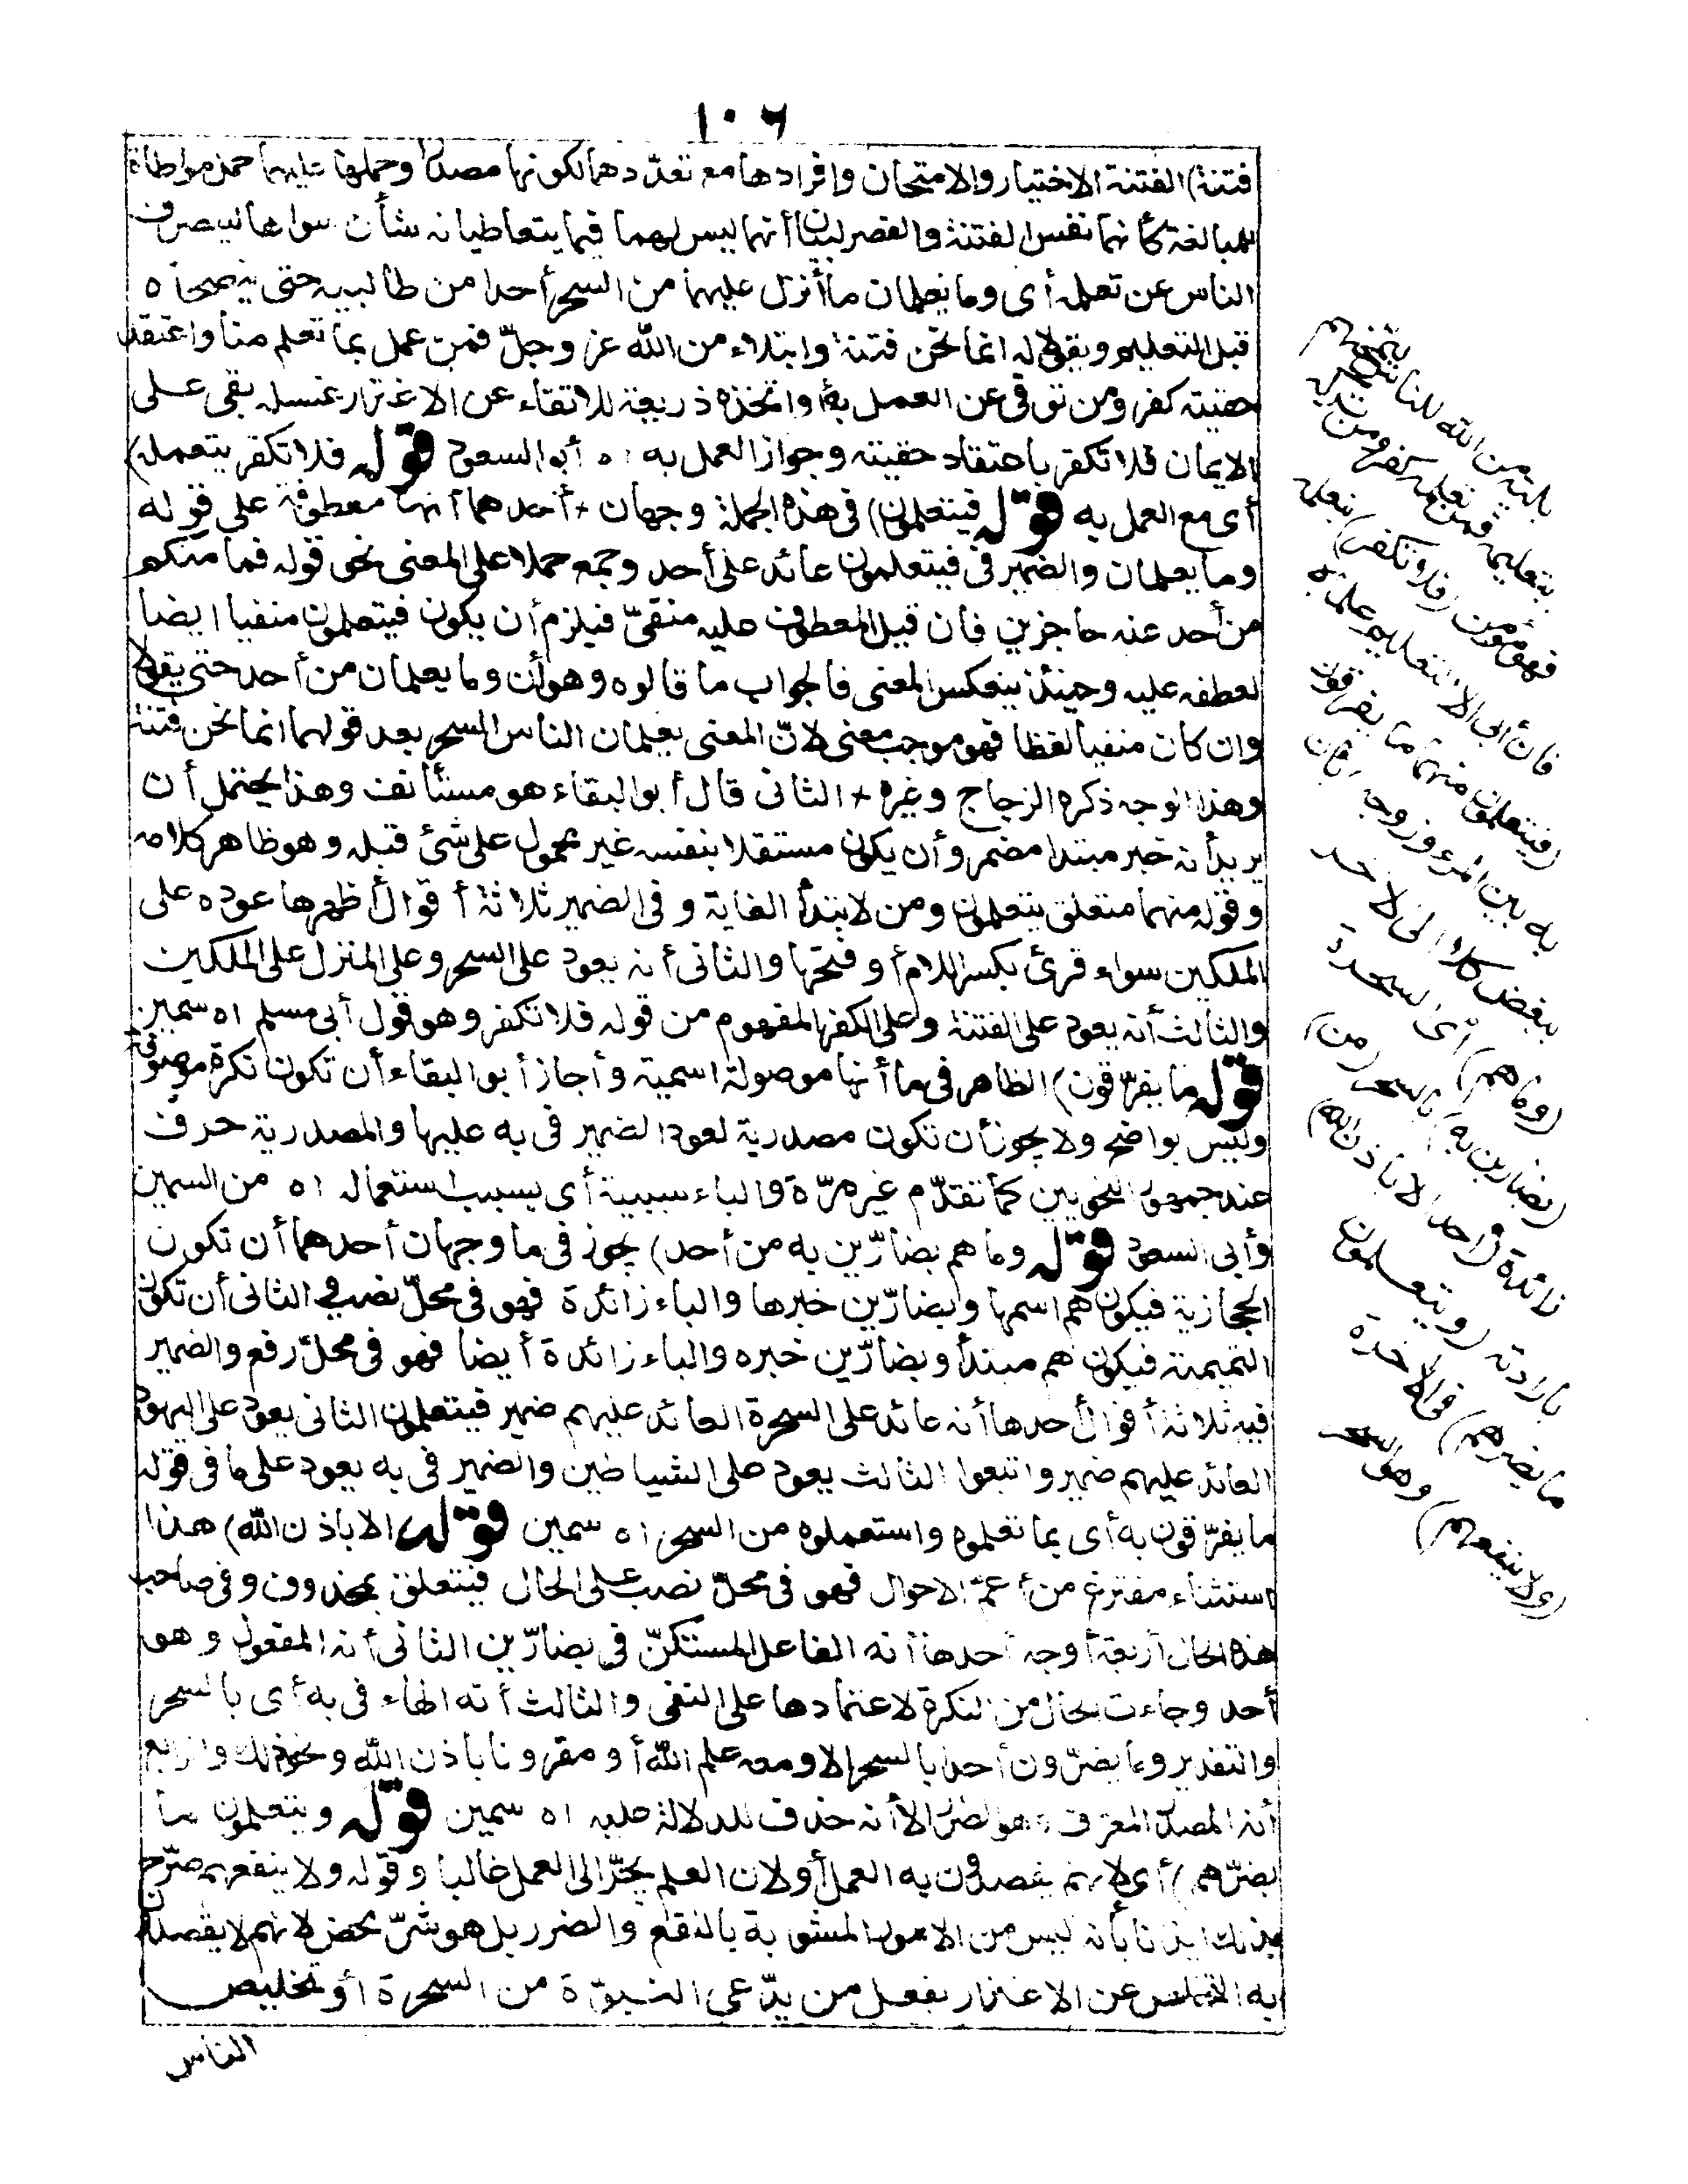 ١٠٦
فتنة) الفتنة الاختبار والامتحان وافرادها مع تعدّدهما لكونها مصدرا وحملها عليهما حمل مواطأة
للمبالغة كأنهما نفس الفتنة والقصر لبيان أنهما ليس لهما فيما يتعاطيانه شأن سواها لينصرف
الناس عن تعلمه أى وما يعلمان ما أنزل عليهما من السحر أحدا من طالبيه حتى ينصحاه
قبل التعليم ويقولا له انما نحن فتنة وابتلاء من الله عز وجلّ فمن عمل بما تعلم منا واعتقد
حقيته كفر ومن توقى عن العمل به أو اتخذه ذريعة للاتقاء عن الاغترار بمثله بقى على
الايمان فلا تكفر باعتقاد حقيته وجواز العمل به اه أبو السعود قوله فلا تكفر بتعمله)
أى مع العمل به قوله فيتعلمون) فى هذه الجملة وجهان + أحدهما أنها معطوفة على قوله
وما يعلمان والضمير فى فيتعلمون عائد على أحد وجمع حملا على المعنى نحو قوله فما منكم
من أحد عنه حاجزين فان قيل المعطوف عليه منفىّ فيلزم أن يكون فيتعلمون منفيا ايضا
لعطفه عليه وحينئذ ينعكس المعنى فالجواب ما قالوه وهو أن وما يعلمان من أحد حتى يقولا
وان كان منفيا لفظا فهو موجب معنى لانّ المعنى يعلمان الناس السحر بعد قولهما انما نحن فتنة
وهذا الوجه ذكره الزجاج وغيره + الثانى قال أبو البقاء هو مستأنف وهذا يحتمل أن
يريد أنه خبر مبتدا مضمر وأن يكون مستقلا بنفسه غير محمول على شئ قبله وهو ظاهر كلامه
وقوله منهما متعلق بيتعلمون ومن لابتدأ الغاية وفى الضمير ثلاثة أقوال أظهرها عوده على
الملكين سواء قرئ بكسر اللام أو فتحها والثانى أنه يعود على السحر وعلى المنزل على الملكين
والثالث أنه يعود على الفتنة وعلى الكفر المفهوم من قوله فلا تكفر وهو قول أبى مسلم اه سمين
قوله ما يفرّقون) الظاهر فى ما أنها موصولة اسمية وأجاز أبو البقاء أن تكون نكرة موصوفة
وليس بواضح ولا يجوز أن تكون مصدرية لعود الضمير فى به عليها والمصدرية حرف
عند جمهور النحويين كما تقدّم غير مرّة والباء سببية أى بسبب استعماله اه من السمين
وأبى السعود قوله وما هم بضارّين به من أحد) يجوز فى ما وجهان أحدهما أن تكون
الحجازية فيكون هم اسمها وبضارّين خبرها والباء زائدة فهو فى محلّ نصب والثانى أن تكون
التميمية فيكون هم مبتدأ وبضارّين خبره والباء زائدة أيضا فهو فى محلّ رفع والضمير
فيه ثلاثة أقوال أحدها أنه عائد على السحرة العائد عليهم ضمير فيتعلمون الثانى يعود على اليهود
العائد عليهم ضمير واتبعوا الثالث يعود على الشياطين والضمير فى به يعود على ما فى قوله
ما يفرّقون به أى بما تعلموه واستعملوه من السحر اه سمين قوله الا باذن الله) هذا
استثناء مفترغ من أعمّ الاحوال فهو فى محلّ نصب على الحال فيتعلق بمحذوف وفى صاحب
هذه الحال أربعة أوجه أحدها أنه الفاعل المستكنّ فى بضارّين الثانى أنه المفعول وهو
أحد وجاءت الحال من النكرة لاعتمادها على النفى والثالث أنه الهاء فى به أى بالسحر
والتقدير وما يضرّون أحدا بالسحر الا ومعه علم الله أو مقرونا باذن الله ونحو ذلك والرابع
أنه المصدر المعرف وهو الضرر الا أنه حذف للدلالة عليه اه سمين قوله ويتعلمون ما
يضرّهم) أى لانهم يقصدون به العمل أو لان العلم يجرّ الى العمل غالبا وقوله ولا ينفعهم صرّح
بذلك ايذانا بأنه ليس من الامور المشوبة بالنفع والضرر بل هو شرّ محض لانهم لا يقصدون
به التخلص عن الاغترار بفعل من يدّعى النبوّة من السحرة أو تخليص
الناس
بلية من الله للناس ليمتحنهم
بتعليمه فمن تعلمه كفر ومن تركه
فهو مؤمن (فلا تكفر) بتعلمه
فان أبى الا التعلم علماه
(فيتعلمون منهما ما يفرقون
به بين المرء وزوجه) بان
يبغض كلا الى الاخر
(وما هم) أى السحرة
(بضارين به) بالسحر (من)
زائدة (أحد الا باذن الله)
بارادته (ويتعلمون
ما يضرهم) فى الاخرة
(ولا ينفعهم) وهو السحر